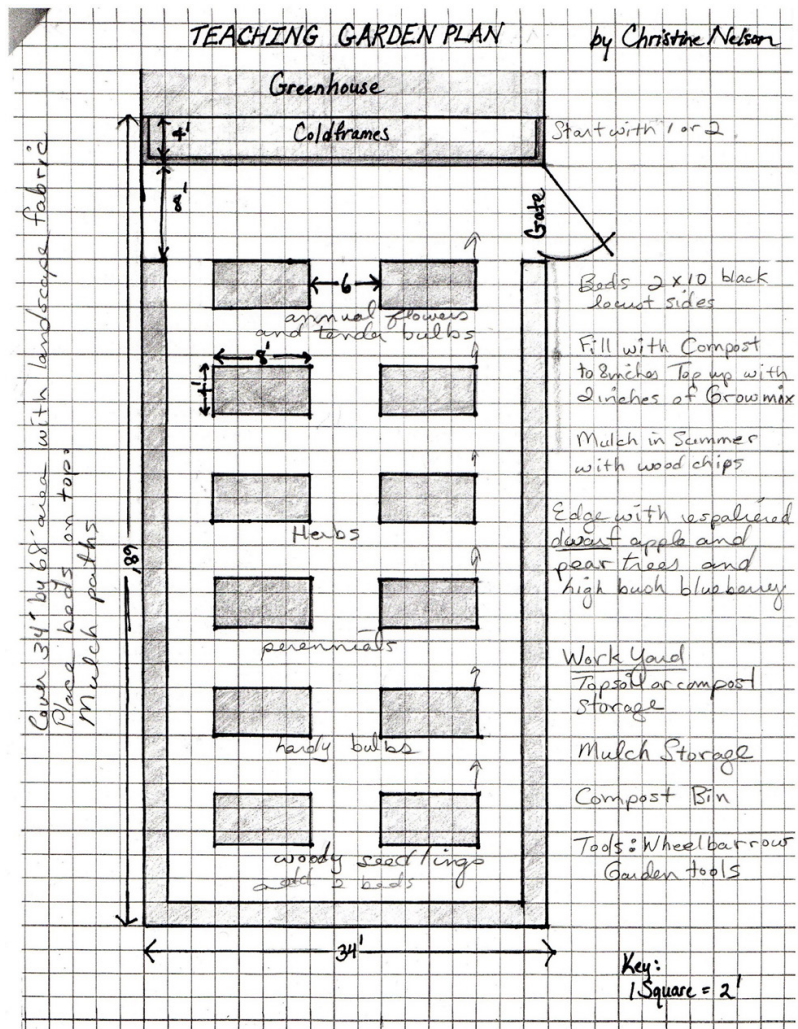 TEACHING GARDEN PLAN
by Christine Nelson
Greenhouse
4'
Coldframes
Start with 1 or 2
8'
Gate
6
annual flowers
and tender bulbs
8'
4'
Herbs
perennials
hardy bulbs
woody seedlings
add 2 beds
68'
34'
Cover 34' by 68' area with landscape fabric
Place beds on top.
Mulch paths
Beds 2 x 10 black
locust sides
Fill with Compost
to 8 inches Top up with
2 inches of Growmix
Mulch in Summer
with wood chips
Edge with espaliered
dwarf apple and
pear trees and
high bush blueberry
Work Yard
Topsoil or compost
Storage
Mulch Storage
Compost Bin
Tools: Wheelbarrow
Garden tools
Key:
1 Square = 2'